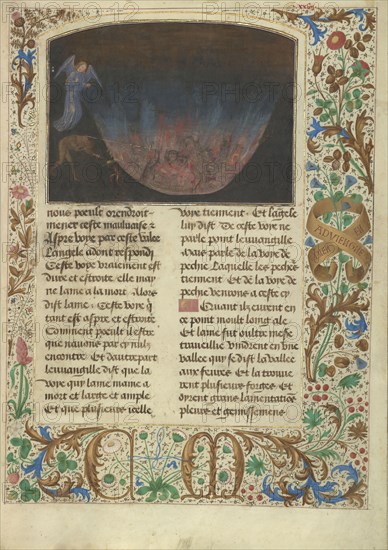 nous poeult orendroit
mener ceste mauluaise et
Aspre voye par ceste valee
Langele adont respondi
Ceste voye vraiement est
dure et estroite elle may
ne lame a la mort Alors
dist lame Ceste voye qui
tant est aspre et estroite
Comment poeult il estre
que nauons par cy nulz
encontre Et dautrepart
leuuangille dist que la
voye qui lame maine a
mort est large et ample
Et que plusieurs icelle
voye tiennent Et langele
luy dist De ceste voye ne
parle point leuuangille
Mais parle de la voye de
pechie Laquelle les pechies
tiennent Et de la voye de
pechie venons a ceste cy
Et quant ilz eurent en
ce point moult longz ale
Et lame fut oultre mesure
trauueillie vindrent en vne
vallee qui se dist la vallee
aux feures Et la trouue
rent plusieurs forges Et
oyrent grans lamentations
pleurs et gemissemens